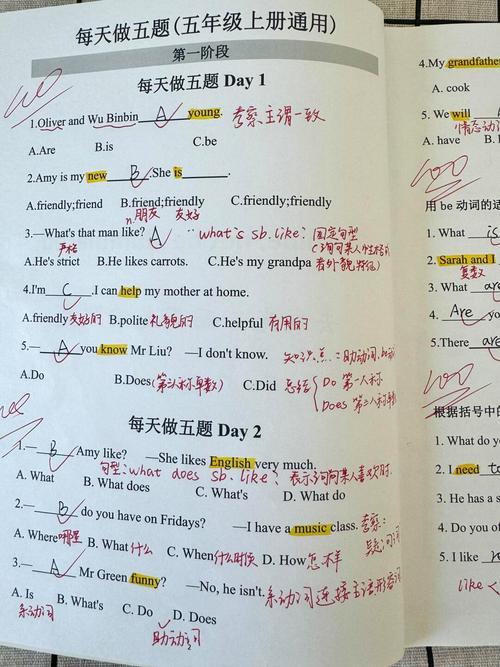 每天做五题(五年级上册通用)
第一阶段
每天做五题 Day 1
100
1.Oliver and Wu Binbin A young. 考察主谓一致
A.Are B.is C.be
2.Amy is my new B .She is .
A.friendly;friend B.friend;friendly C.friendly;friendly
n.朋友 友好
3.—What's that man like? A what's sb. like? 固定句型
严格
A.He's strict B.He likes carrots. C.He's my grandpa
4.I'm C .I can help my mother at home.
A.friendly 友好的 B.polite 礼貌的 C.helpful 有用的
5.— A you know Mr Liu? —I don't know. 知识点:助动词
A.Do B.Does(第三人称单数) C.Did 总结 Do 第一人称
Does 第三人称
每天做五题 Day 2
1.— B Amy like? —She likes English very much.
句型:what does sb. like? 表示询问某人喜欢
A. What B. What does C. What's D. What do
2.— B do you have on Fridays? —I have a music class. 考察:
A. Where哪里 B. What什么 C. When什么时候 D. How怎样
3.— A Mr Green funny? —No, he isn't. 系动词连接主语形容词
A. Is B. What's C. Do D. Does
系动词 助动词
4.My grandfather
A. cook
5. We will
情态动
A. have B.
100
用 be 动词的适
1. What is
2. Sarah and I
复数
3. What are
4. Are
5.There are
100
根据括号中的
1. What do yo
2. I need to
3. He has a s
4. Do you of
5. I like
like